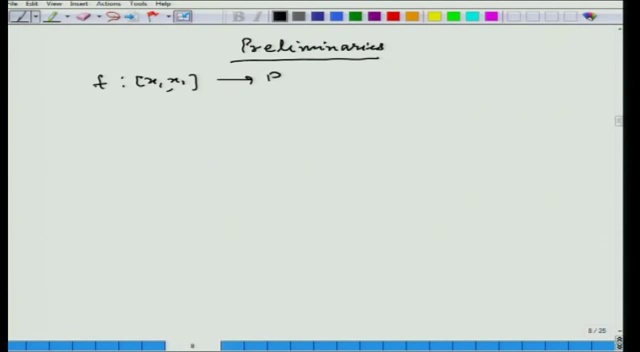 File Edit View Insert Actions Tools Help
Preliminaries
f : [x₁, x₁] → P
8 / 25
8